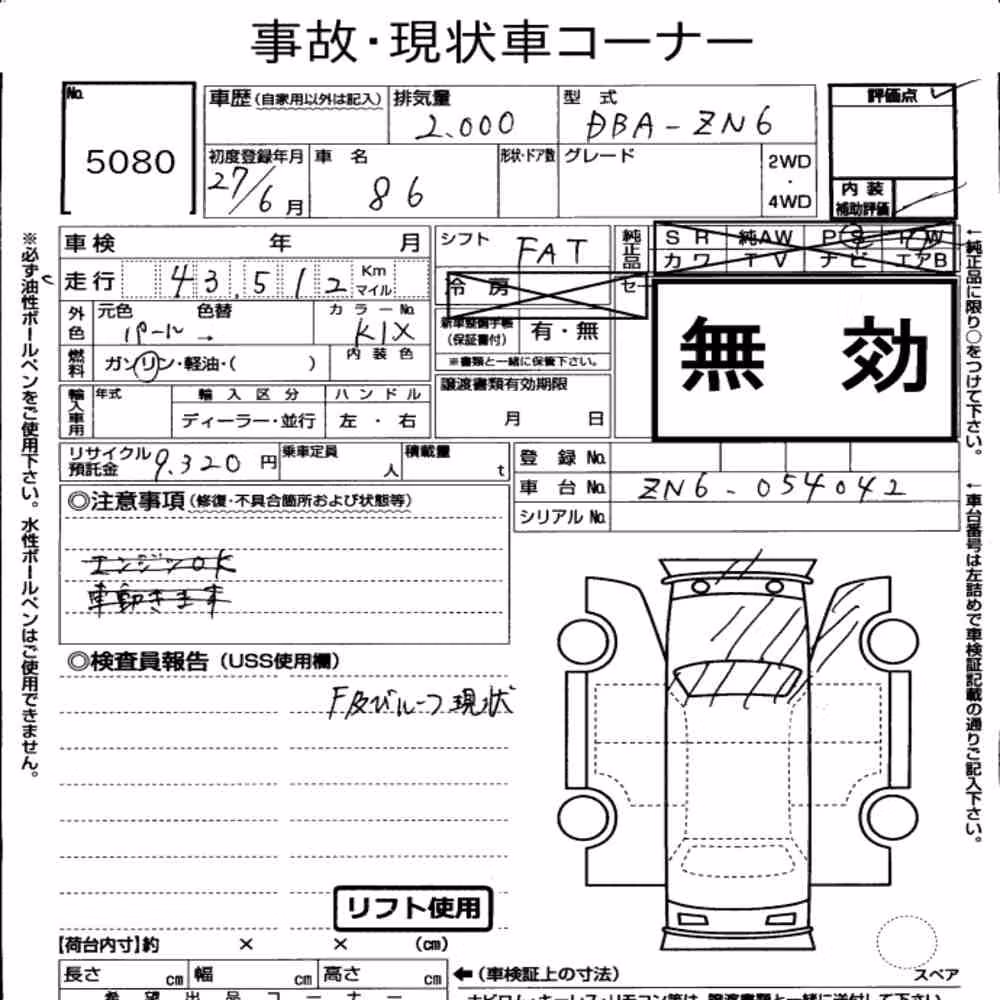 事故・現状車コーナー
No.
5080
車歴(自家用以外は記入)
排気量
2.000
型式
DBA-ZN6
初度登録年月
27/6月
車名
86
形状・ドア数
グレード
2WD
・
4WD
評価点
内装
補助評価
※必ず油性ボールペンをご使用下さい。水性ボールペンはご使用できません。
車検 年 月
走行 43,512 Km マイル
外色
元色 色替
パール →
カラーNo.
K1X
燃料
ガソリン・軽油・( )
内装色
輸入車用
年式
輸入区分
ディーラー・並行
ハンドル
左・右
リサイクル預託金 9.320円
乗車定員 人
積載量 t
シフト
FAT
冷房
新車整備手帳
(保証書付)
有・無
※書類と一緒に保管下さい。
譲渡書類有効期限
月 日
純正品
SR 純AW PS PW
カワ TV ナビ エアB
セ
無効
登録No.
車台No. ZN6-054042
シリアルNo.
←純正品に限り○をつけて下さい。
←車台番号は左詰めで車検証記載の通りご記入下さい。
◎注意事項(修復・不具合箇所および状態等)
エンジンOK
車動きます
◎検査員報告(USS使用欄)
F及びルーフ現状
リフト使用
【荷台内寸】約 × × (cm)
長さ cm 幅 cm 高さ cm
←(車検証上の寸法)
スペア
希望出品コーナー